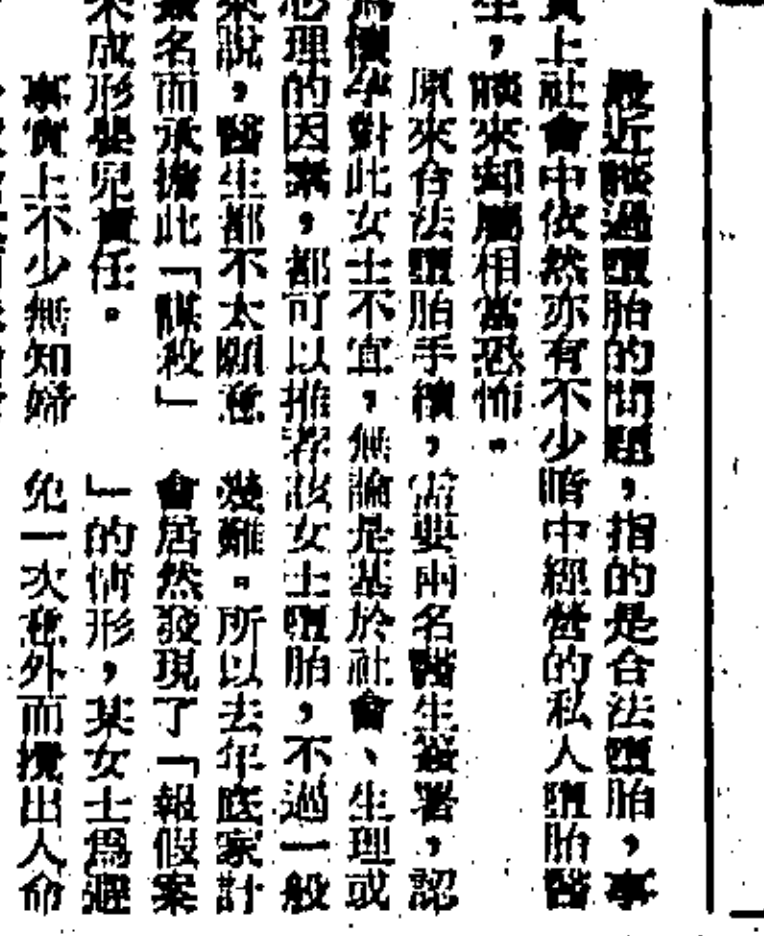 最近談過墮胎的問題,指的是合法墮胎,事
實上社會中依然亦有不少暗中經營的私人墮胎醫
生,談來却屬相當恐怖。
原來合法墮胎手續,需要兩名醫生簽署,認
爲懷孕對此女士不宜,無論是基於社會、生理或
心理的因素,都可以推荐該女士墮胎,不過一般
來說,醫生都不太願意
簽名而承擔此「謀殺」
未成形嬰兒責任。
事實上不少無知婦
難。所以去年底家計
會居然發現了「報假案
」的情形,某女士爲避
免一次意外而攪出人命